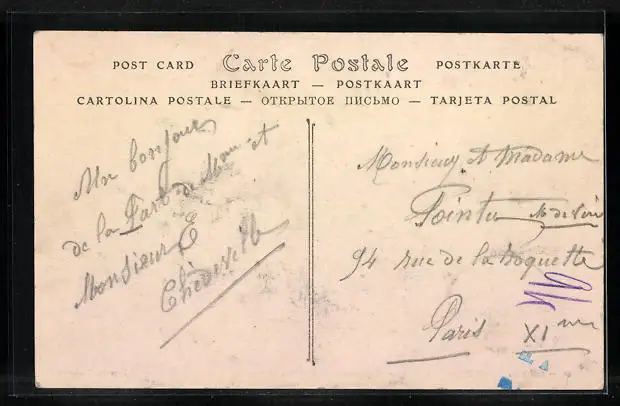 POST CARD Carte Postale POSTKARTE
BRIEFKAART — POSTKAART
CARTOLINA POSTALE — ОТКРЫТОЕ ПИСЬМО — TARJETA POSTAL
Un bonjour
de la Part de Mme et
Monsieur E
Chèdeville
Monsieur et Madame
Pointu Md de Vin
94 rue de la Roquette
Paris XIme